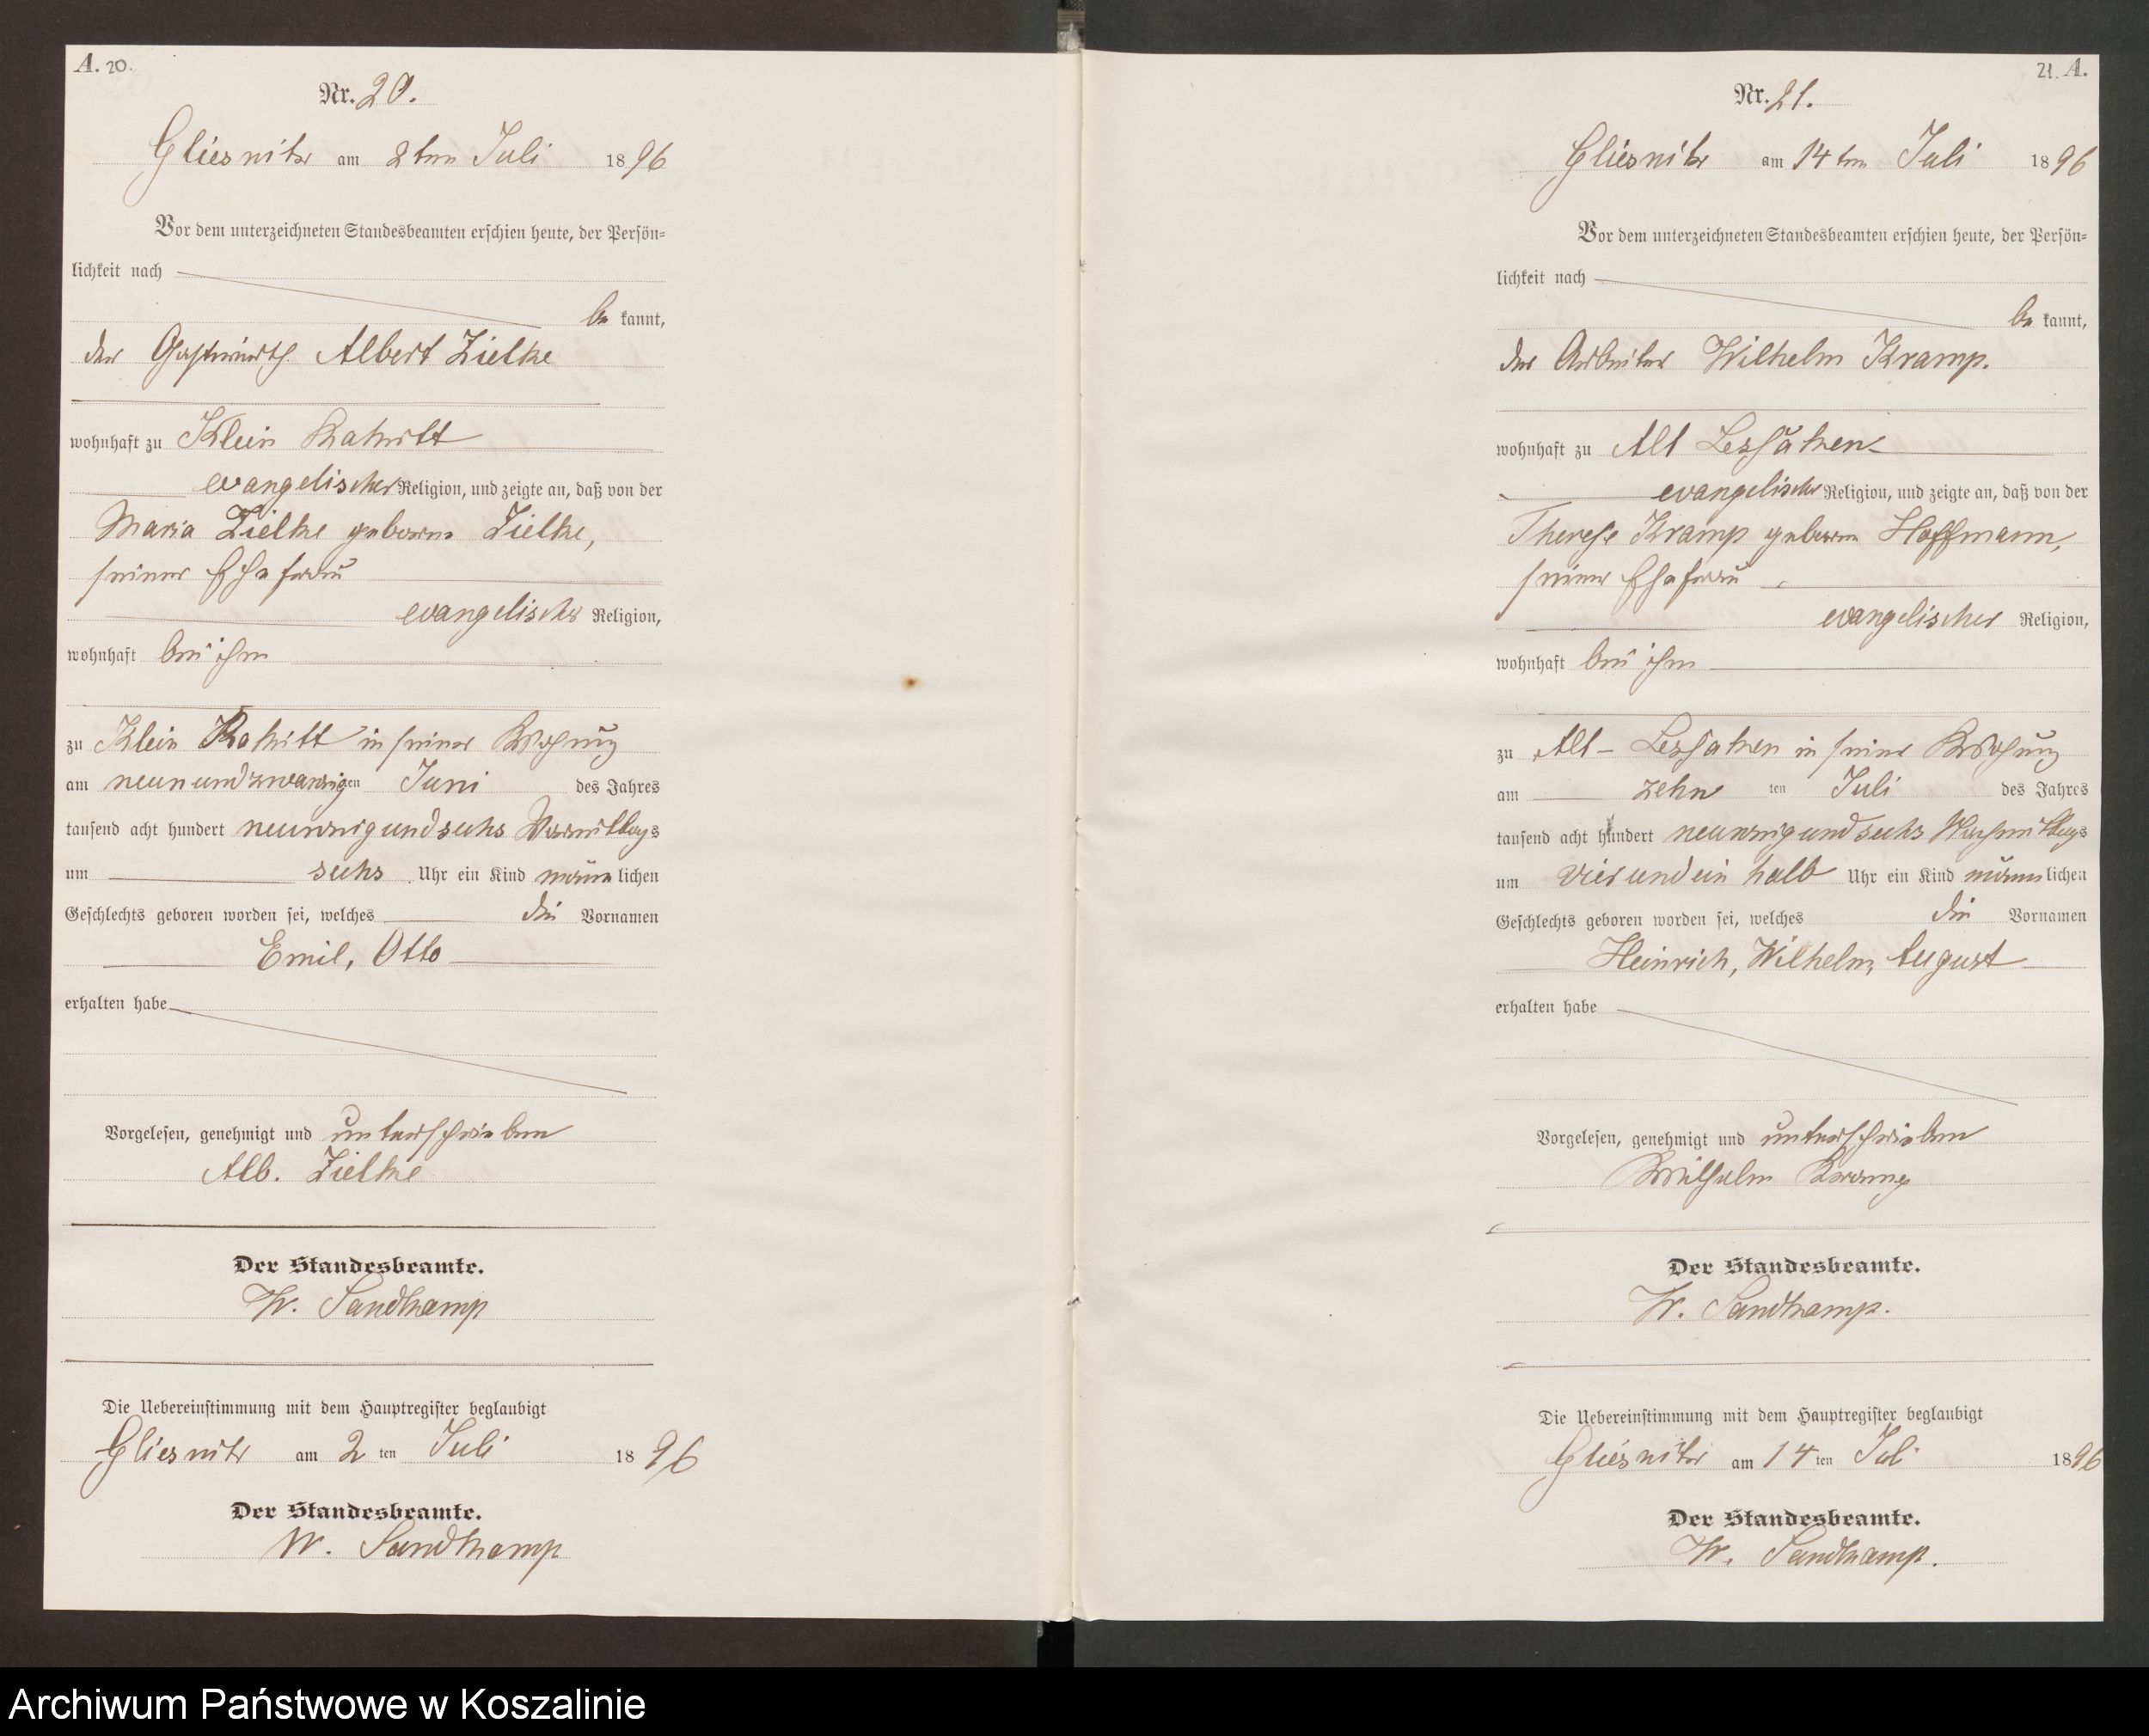 A. 20.
Nr. 20.
Gliesnitz am 2ten Juli 1896
Vor dem unterzeichneten Standesbeamten erschien heute, der Persön=
lichkeit nach
be kannt,
der Gastwirth Albert Zielke
wohnhaft zu Klein Rakitt
evangelischer Religion, und zeigte an, daß von der
Maria Zielke geborne Zielke,
seiner Ehefrau
evangelischer Religion,
wohnhaft bei ihm
zu Klein Rakitt in seiner Wohnung
am neunundzwanzigen Juni des Jahres
tausend acht hundert neunzigundsechs Vormittags
um sechs Uhr ein Kind männlichen
Geschlechts geboren worden sei, welches die Vornamen
Emil, Otto
erhalten habe
Vorgelesen, genehmigt und unterschrieben
Alb. Zielke
Der Standesbeamte.
W. Sandkamp
Die Uebereinstimmung mit dem Hauptregister beglaubigt
Gliesnitz am 2 ten Juli 1896
Der Standesbeamte.
W. Sandkamp
21. A.
Nr. 21.
Gliesnitz am 14ten Juli 1896
Vor dem unterzeichneten Standesbeamten erschien heute, der Persön=
lichkeit nach
be kannt,
der Arbeiter Wilhelm Kramp.
wohnhaft zu Alt
evangelischer Religion, und zeigte an, daß von der
Therese Kramp geborne Hoffmann,
seiner Ehefrau
evangelischer Religion,
wohnhaft bei ihm
zu Alt- in seiner Wohnung
am zehn ten Juli des Jahres
tausend acht hundert neunzigundsechs Nachmittags
um vierundein halb Uhr ein Kind männlichen
Geschlechts geboren worden sei, welches die Vornamen
Heinrich, Wilhelm, August
erhalten habe
Vorgelesen, genehmigt und unterschrieben
Wilhelm Kramp
Der Standesbeamte.
W. Sandkamp.
Die Uebereinstimmung mit dem Hauptregister beglaubigt
Gliesnitz am 14 ten Juli 1896
Der Standesbeamte.
W. Sandkamp.
Archiwum Państwowe w Koszalinie